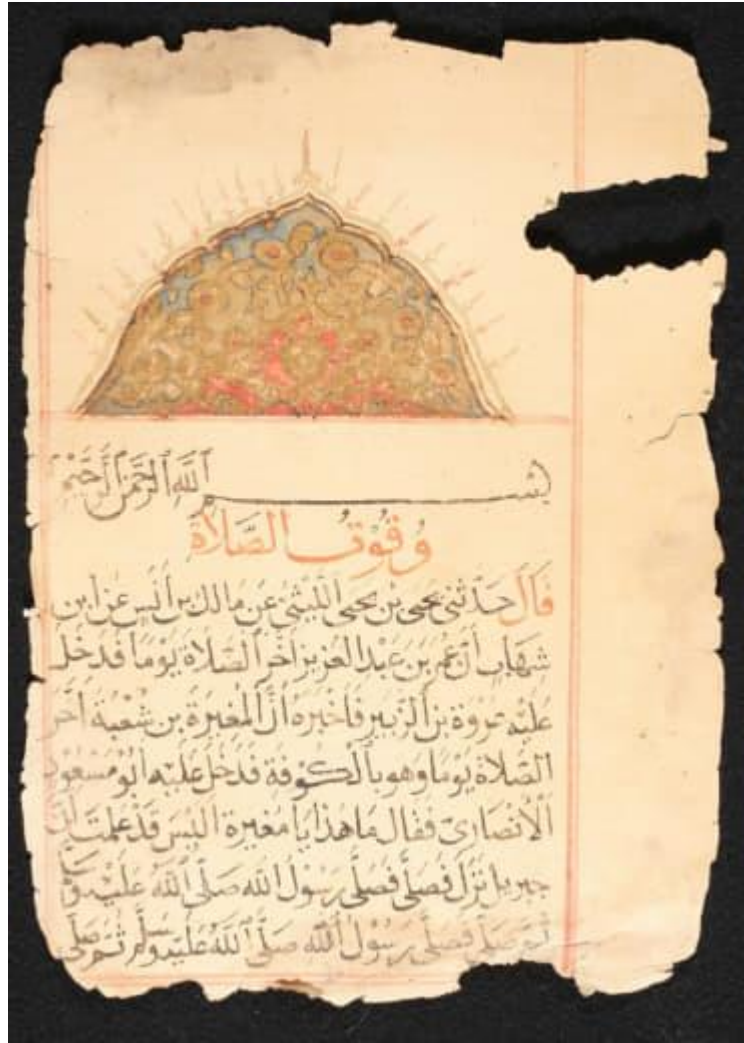 بِسْمِ ٱللَّهِ ٱلرَّحْمَٰنِ ٱلرَّحِيمِ
وُقُوتُ الصَّلَاةِ
قَالَ حَدَّثَنِي يَحْيَى بْنُ يَحْيَى اللَّيْثِيُّ عَنْ مَالِكِ بْنِ أَنَسٍ عَنِ ابْنِ
شِهَابٍ أَنَّ عُمَرَ بْنَ عَبْدِ الْعَزِيزِ أَخَّرَ الصَّلَاةَ يَوْمًا فَدَخَلَ
عَلَيْهِ عُرْوَةُ بْنُ الزُّبَيْرِ فَأَخْبَرَهُ أَنَّ الْمُغِيرَةَ بْنَ شُعْبَةَ أَخَّرَ
الصَّلَاةَ يَوْمًا وَهُوَ بِالْكُوفَةِ فَدَخَلَ عَلَيْهِ أَبُو مَسْعُودٍ
الْأَنْصَارِيُّ فَقَالَ مَا هَذَا يَا مُغِيرَةُ أَلَيْسَ قَدْ عَلِمْتَ أَنَّ
جِبْرِيلَ نَزَلَ فَصَلَّى فَصَلَّى رَسُولُ اللَّهِ صَلَّى اللَّهُ عَلَيْهِ وَسَلَّمَ
ثُمَّ صَلَّى فَصَلَّى رَسُولُ اللَّهِ صَلَّى اللَّهُ عَلَيْهِ وَسَلَّمَ ثُمَّ صَلَّى